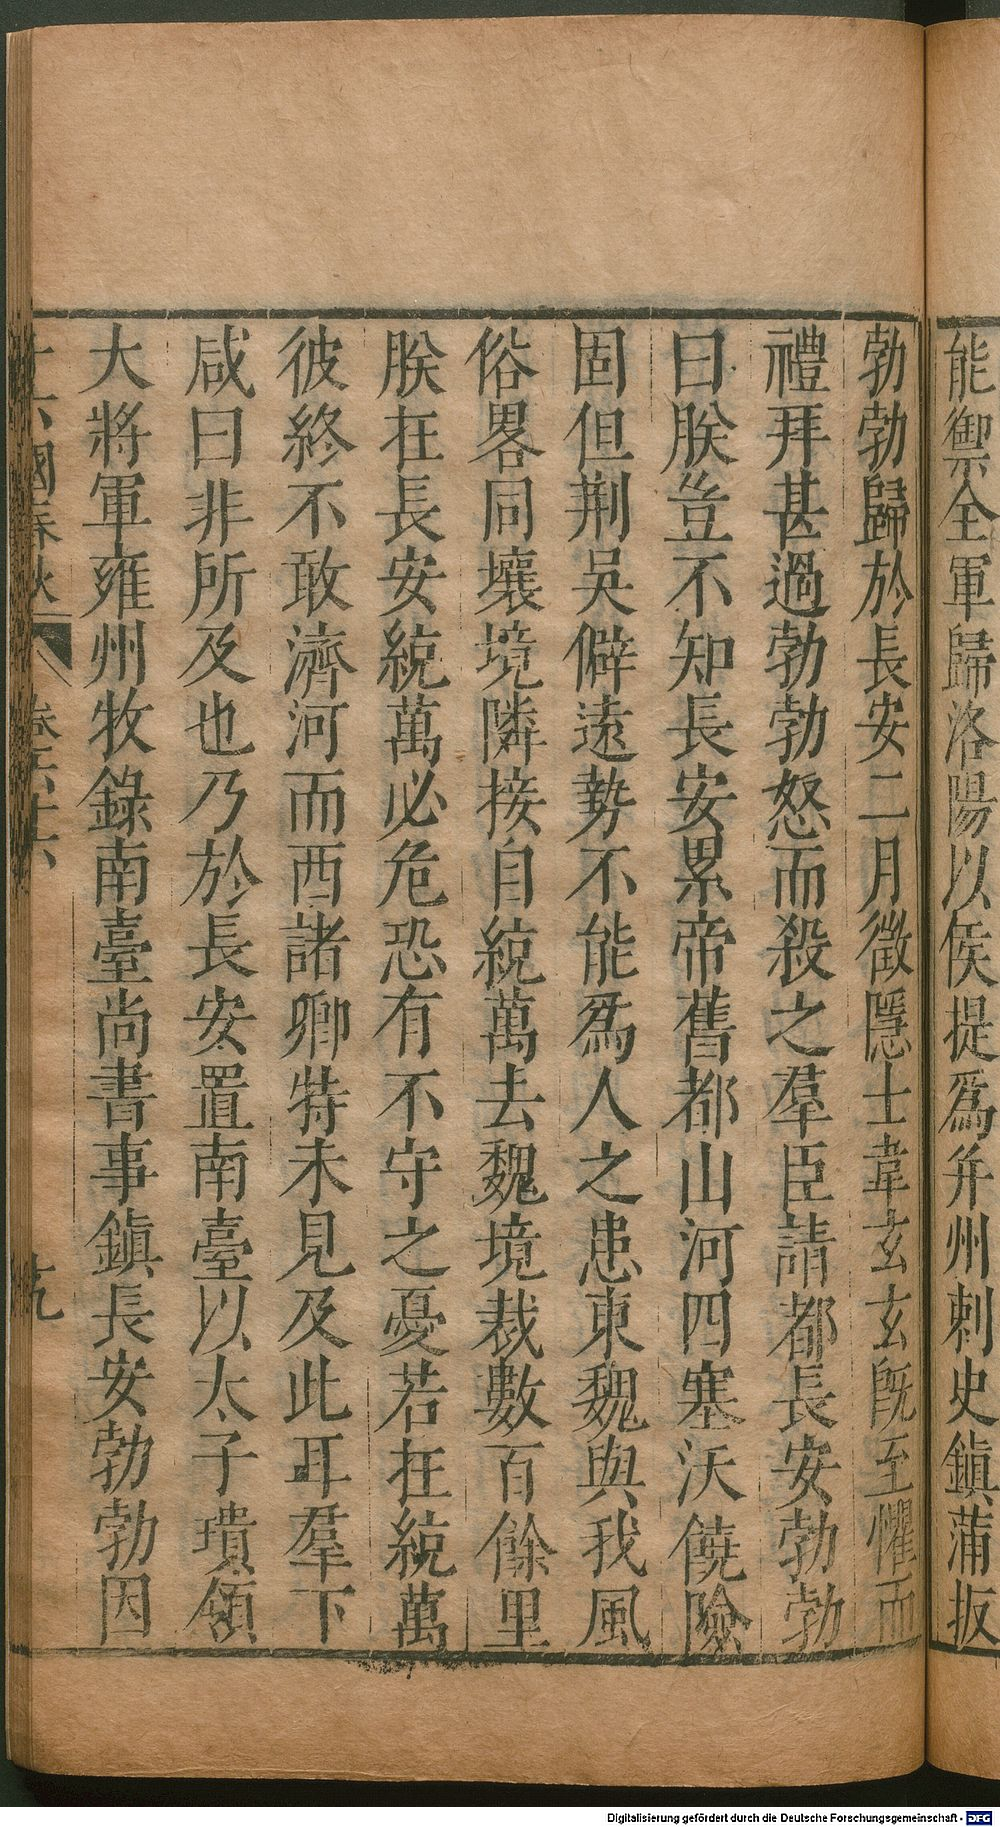 能禦全軍歸洛陽以侯提爲并州刺史鎮蒲坂
勃勃歸於長安二月徵隱士韋玄玄旣至懼而
禮拜甚過勃勃怒而殺之羣臣請都長安勃勃
曰朕豈不知長安累帝舊都山河四塞沃饒險
固但荆吳僻遠勢不能爲人之患東魏與我風
俗畧同壤境隣接自統萬去魏境裁數百餘里
朕在長安統萬必危恐有不守之憂若在統萬
彼終不敢濟河而西諸卿特未見及此耳羣下
咸曰非所及也乃於長安置南臺以太子璝領
大將軍雍州牧錄南臺尚書事鎮長安勃勃因
十六國春秋 卷六十六 九
Digitalisierung gefördert durch die Deutsche Forschungsgemeinschaft - DFG